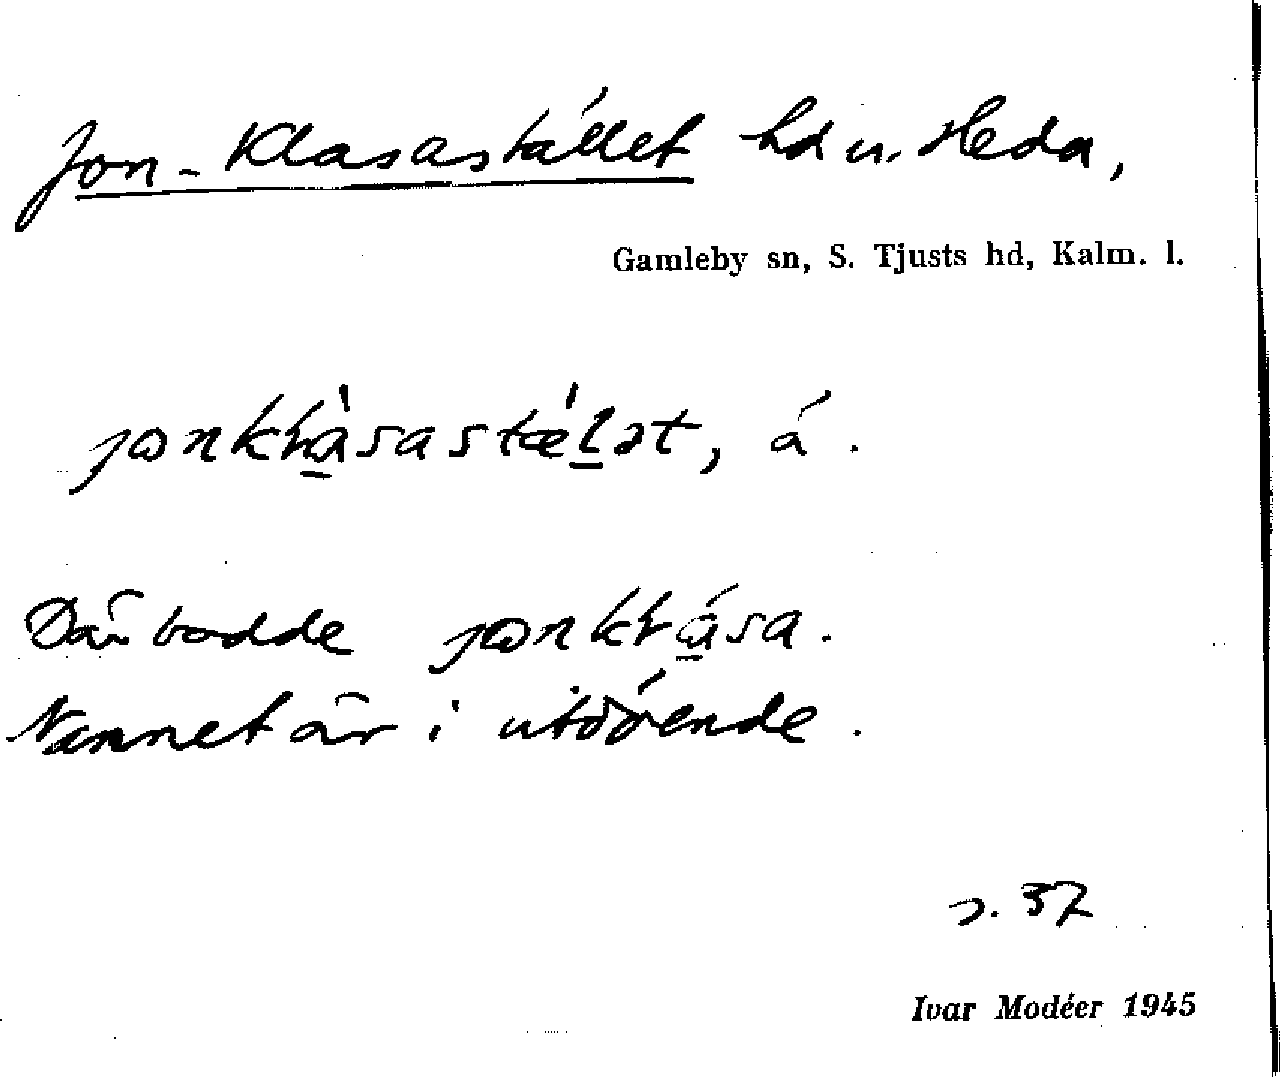 Jon-Klasastället hd u. Heda,
Gamleby sn, S. Tjusts hd, Kalm. l.
á.
Där bodde
Namnet är i utdöende.
s. 37
Ivar Modéer 1945